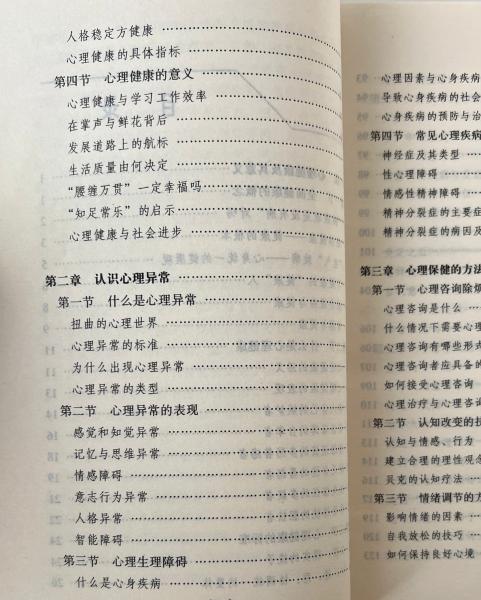 人格稳定方健康
心理健康的具体指标
第四节 心理健康的意义
心理健康与学习工作效率
在掌声与鲜花背后
发展道路上的航标
生活质量由何决定
“腰缠万贯”一定幸福吗
“知足常乐”的启示
心理健康与社会进步
第二章 认识心理异常
第一节 什么是心理异常
扭曲的心理世界
心理异常的标准
为什么出现心理异常
心理异常的类型
第二节 心理异常的表现
感觉和知觉异常
记忆与思维异常
情感障碍
意志行为异常
人格异常
智能障碍
第三节 心理生理障碍
什么是心身疾病
心理因素与心身疾病
导致心身疾病的社会
心身疾病的预防与治
第四节 常见心理疾病
神经症及其类型
性心理障碍
情感性精神障碍
精神分裂症的主要症
精神分裂症的病因及
第三章 心理保健的方法
第一节 心理咨询除烦
心理咨询是什么
什么情况下需要心理
心理咨询有哪些形式
心理咨询者应具备的
如何接受心理咨询
心理治疗与心理咨询
第二节 认知改变的技
认知与情感、行为
建立合理的理性观念
贝克的认知疗法
第三节 情绪调节的方
影响情绪的因素
自我放松的技巧
如何保持良好心境